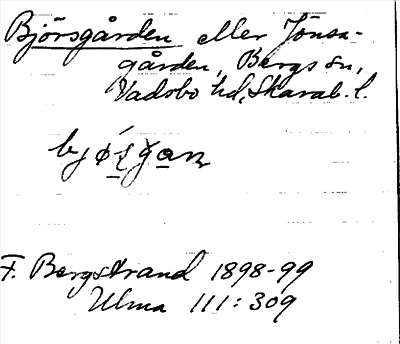 Björsgården eller Jönsa-
gården, Bergs sn,
Vadsbo hd, Skarab. l.
F. Bergstrand 1898-99
Ulma 111:309